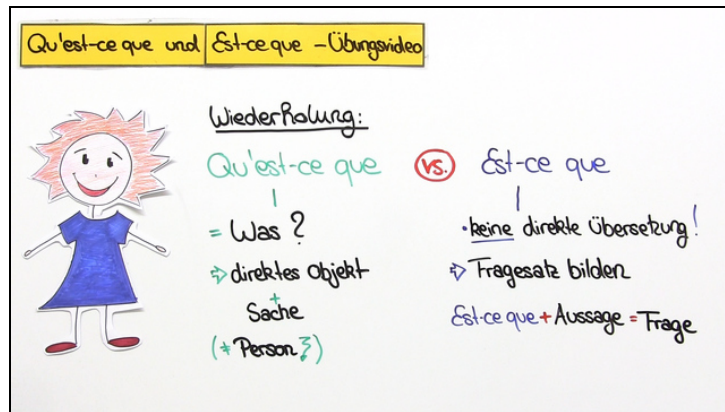 Qu'est-ce que und Est-ce que - Übungsvideo
Wiederholung:
Qu'est-ce que
= Was?
⇨ direktes Objekt
+
Sache
(≠ Person ⚡)
vs.
Est-ce que
• keine direkte Übersetzung!
⇨ Fragesatz bilden
Est-ce que + Aussage = Frage